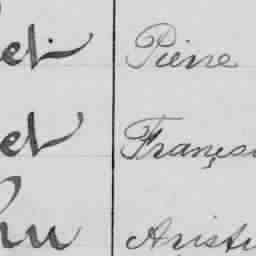 et Pierre
et Franço
nu Aristi